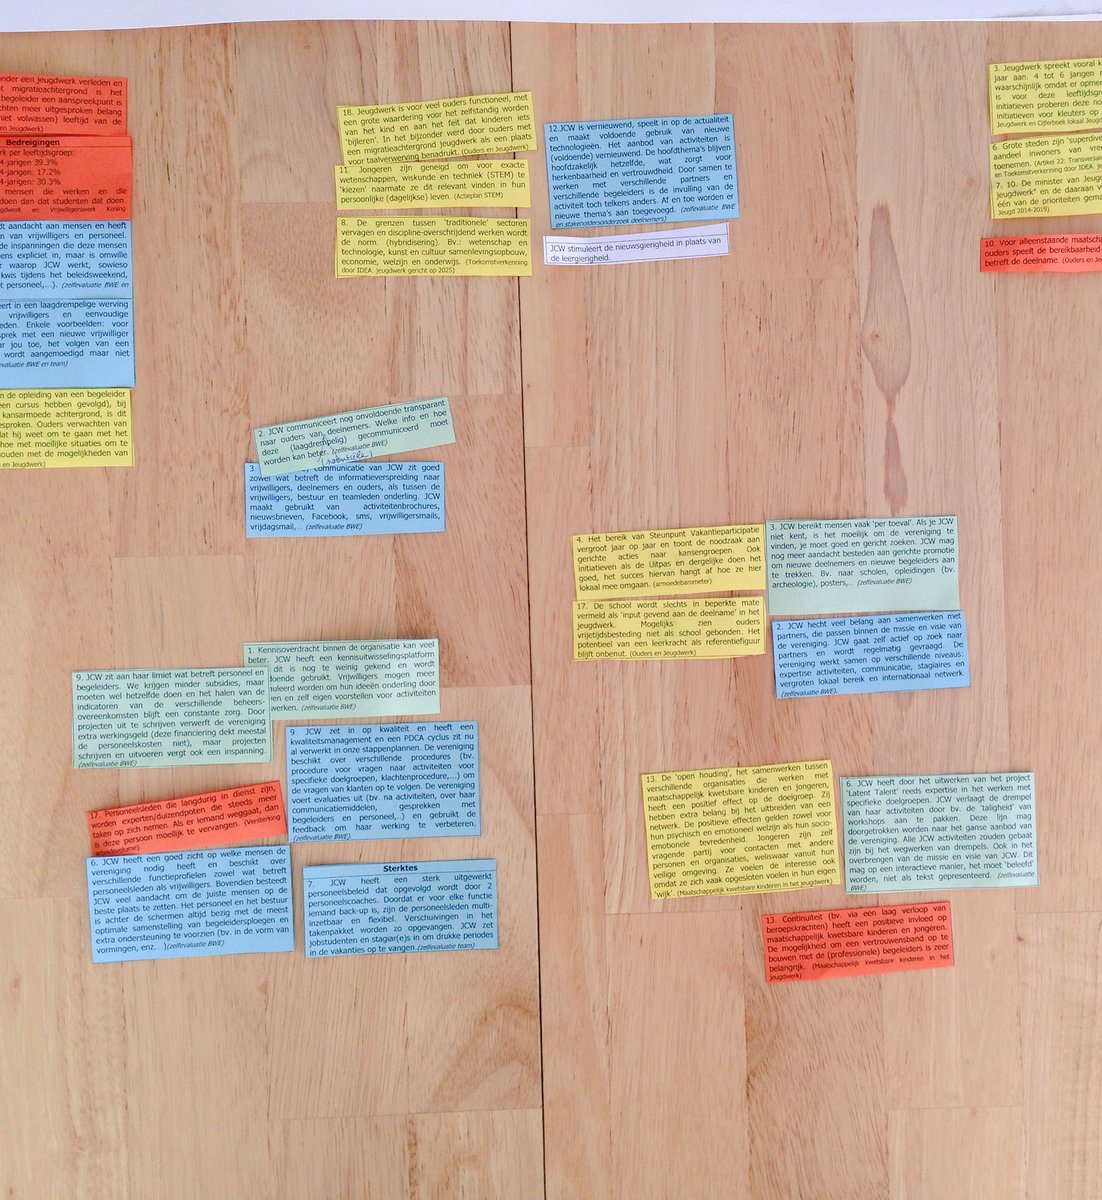 onder een jeugdwerk verleden en
migratieachtergrond is het
begeleider een aanspreekpunt is
chten meer uitgesproken belang
niet volwassen) leeftijd van de
en Jeugdwerk)
Bedreigingen
rk per leeftijdsgroep:
4-jarigen 39.3%
4-jarigen: 17.2%
4-jarigen: 30.3%
mensen die werken en die
doen dan dat studenten dat doen.
gdwerk en Vrijwilligerswerk Koning
dt aandacht aan mensen en heeft
n van vrijwilligers en personeel.
de inspanningen die deze mensen
ens expliciet in, maar is omwille
r waarop JCW werkt, sowieso
kwis tijdens het beleidsweekend,
t personeel,…). (zelfevaluatie BWE en
eert in een laagdrempelige werving
vrijwilligers en eenvoudige
eden. Enkele voorbeelden: voor
sprek met een nieuwe vrijwilliger
ar jou toe, het volgen van een
wordt aangemoedigd maar niet
evaluatie BWE en team)
n de opleiding van een begeleider
een cursus hebben gevolgd), bij
kansarmoede achtergrond, is dit
sproken. Ouders verwachten van
dat hij weet om te gaan met het
hoe met moeilijke situaties om te
houden met de mogelijkheden van
s en Jeugdwerk)
18. Jeugdwerk is voor veel ouders functioneel, met
een grote waardering voor het zelfstandig worden
van het kind en aan het feit dat kinderen iets
'bijleren'. In het bijzonder werd door ouders met
een migratieachtergrond jeugdwerk als een plaats
voor taalverwerving benadrukt. (Ouders en Jeugdwerk)
11. Jongeren zijn geneigd om voor exacte
wetenschappen, wiskunde en techniek (STEM) te
'kiezen' naarmate ze dit relevant vinden in hun
persoonlijke (dagelijkse) leven. (Actieplan STEM)
8. De grenzen tussen 'traditionele' sectoren
vervagen en discipline-overschrijdend werken wordt
de norm. (hybridisering). Bv.: wetenschap en
technologie, kunst en cultuur samenlevingsopbouw,
economie, welzijn en onderwijs. (Toekomstverkenning
door IDEA: jeugdwerk gericht op 2025)
12.JCW is vernieuwend, speelt in op de actualiteit
en maakt voldoende gebruik van nieuwe
technologieën. Het aanbod van activiteiten is
(voldoende) vernieuwend. De hoofdthema's blijven
hoofdzakelijk hetzelfde, wat zorgt voor
herkenbaarheid en vertrouwdheid. Door samen te
werken met verschillende partners en
verschillende begeleiders is de invulling van de
activiteit toch telkens anders. Af en toe worden er
nieuwe thema's aan toegevoegd. (zelfevaluatie BWE
en stakeholdersonderzoek deelnemers)
JCW stimuleert de nieuwsgierigheid in plaats van
de leergierigheid.
3. Jeugdwerk spreekt vooral k
jaar aan. 4 tot 6 jarigen n
waarschijnlijk omdat er opmer
is voor deze leeftijdsgr
initiatieven proberen deze no
initiatieven voor kleuters op
Jeugdwerk en Cijferboek lokaal Jeugd
6. Grote steden zijn 'superdive
aandeel inwoners van vree
toenemen. (Artikel 22: Transversale
en Toekomstverkenning door IDEA: je
7. 10. De minister van Jeugd
jeugdwerk" en de daaraan v
één van de prioriteiten gema
Jeugd 2014-2019)
10. Voor alleenstaande maatscha
ouders speelt de bereikbaarheid
betreft de deelname. (Ouders en Jeu
2. JCW communiceert nog onvoldoende transparant
naar ouders van deelnemers. Welke info en hoe
deze (laagdrempelig) gecommuniceerd moet
worden kan beter. (zelfevaluatie BWE)
(potentiële)
3. communicatie van JCW zit goed
zowel wat betreft de informatieverspreiding naar
vrijwilligers, deelnemers en ouders, als tussen de
vrijwilligers, bestuur en teamleden onderling. JCW
maakt gebruikt van activiteitenbrochures,
nieuwsbrieven, Facebook, sms, vrijwilligersmails,
vrijdagsmail,… (zelfevaluatie BWE)
4. Het bereik van Steunpunt Vakantieparticipatie
vergroot jaar op jaar en toont de noodzaak aan
gerichte acties naar kansengroepen. Ook
initiatieven als de Uitpas en dergelijke doen het
goed, het succes hiervan hangt af hoe ze hier
lokaal mee omgaan. (armoedebarometer)
17. De school wordt slechts in beperkte mate
vermeld als 'input gevend aan de deelname' in het
jeugdwerk. Mogelijks zien ouders
vrijetijdsbesteding niet als school gebonden. Het
potentieel van een leerkracht als referentiefiguur
blijft onbenut. (Ouders en Jeugdwerk)
3. JCW bereikt mensen vaak 'per toeval'. Als je JCW
niet kent, is het moeilijk om de vereniging te
vinden, je moet goed en gericht zoeken. JCW mag
nog meer aandacht besteden aan gerichte promotie
om nieuwe deelnemers en nieuwe begeleiders aan
te trekken. Bv. naar scholen, opleidingen (bv.
archeologie), posters,… (zelfevaluatie BWE)
2. JCW hecht veel belang aan samenwerken met
partners, die passen binnen de missie en visie van
de vereniging. JCW gaat zelf actief op zoek naar
partners en wordt regelmatig gevraagd. De
vereniging werkt samen op verschillende niveaus:
expertise activiteiten, communicatie, stagiaires en
vergroten lokaal bereik en internationaal netwerk
(zelfevaluatie BWE).
1. Kennisoverdracht binnen de organisatie kan veel
beter. JCW heeft een kennisuitwisselingsplatform
dit is nog te weinig gekend en wordt
doende gebruikt. Vrijwilligers mogen meer
muleerd worden om hun ideeën onderling door
ven en zelf eigen voorstellen voor activiteiten
werken. (zelfevaluatie BWE)
9. JCW zit aan haar limiet wat betreft personeel en
begeleiders. We krijgen minder subsidies, maar
moeten wel hetzelfde doen en het halen van de
indicatoren van de verschillende beheers-
overeenkomsten blijft een constante zorg. Door
projecten uit te schrijven verwerft de vereniging
extra werkingsgeld (deze financiering dekt meestal
de personeelskosten niet), maar projecten
schrijven en uitvoeren vergt ook een inspanning.
(zelfevaluatie BWE)
9. JCW zet in op kwaliteit en heeft een
kwaliteitsmanagement en een PDCA cyclus zit nu
al verwerkt in onze stappenplannen. De vereniging
beschikt over verschillende procedures (bv.
procedure voor vragen naar activiteiten voor
specifieke doelgroepen, klachtenprocedure,…) om
de vragen van klanten op te volgen. De vereniging
voert evaluaties uit (bv. na activiteiten, over haar
communicatiemiddelen, gesprekken met
begeleiders en personeel,…) en gebruikt de
feedback om haar werking te verbeteren.
(zelfevaluatie BWE).
17. Personeelsleden die langdurig in dienst zijn,
worden experten/duizendpoten die steeds meer
taken op zich nemen. Als er iemand weggaat, dan
is deze persoon moeilijk te vervangen. (Versterking
6. JCW heeft een goed zicht op welke mensen de
vereniging nodig heeft en beschikt over
verschillende functieprofielen zowel wat betreft
personeelsleden als vrijwilligers. Bovendien besteedt
JCW veel aandacht om de juiste mensen op de
beste plaats te zetten. Het personeel en het bestuur
is achter de schermen altijd bezig met de meest
optimale samenstelling van begeleidersploegen en
extra ondersteuning te voorzien (bv. in de vorm van
vormingen, enz.. )(zelfevaluatie BWE)
Sterktes
7. JCW heeft een sterk uitgewerkt
personeelsbeleid dat opgevolgd wordt door 2
personeelscoaches. Doordat er voor elke functie
iemand back-up is, zijn de personeelsleden multi-
inzetbaar en flexibel. Verschuivingen in het
takenpakket worden zo opgevangen. JCW zet
jobstudenten en stagiar(e)s in om drukke periodes
in de vakanties op te vangen.(zelfevaluatie team)
13. De 'open houding', het samenwerken tussen
verschillende organisaties die werken met
maatschappelijk kwetsbare kinderen en jongeren,
heeft een positief effect op de doelgroep. Zij
hebben extra belang bij het uitbreiden van een
netwerk. De positieve effecten gelden zowel voor
hun psychisch en emotioneel welzijn als hun socio-
emotionele tevredenheid. Jongeren zijn zelf
vragende partij voor contacten met andere
personen en organisaties, weliswaar vanuit hun
veilige omgeving. Ze voelen de interesse ook
omdat ze zich vaak opgesloten voelen in hun eigen
'wijk'. (Maatschappelijk kwetsbare kinderen en het jeugdwerk)
6. JCW heeft door het uitwerken van het project
'Latent Talent' reeds expertise in het werken met
specifieke doelgroepen. JCW verlaagt de drempel
van haar activiteiten door bv. de 'taligheid' van
workshops aan te pakken. Deze lijn mag
doorgetrokken worden naar het ganse aanbod van
de vereniging. Alle JCW activiteiten zouden gebaat
zijn bij het wegwerken van drempels. Ook in het
overbrengen van de missie en visie van JCW. Dit
mag op een interactieve manier, het moet 'beleefd'
worden, niet als tekst gepresenteerd. (zelfevaluatie
BWE)
13. Continuïteit (bv. via een laag verloop van
beroepskrachten) heeft een positieve invloed op
maatschappelijk kwetsbare kinderen en jongeren.
De mogelijkheid om een vertrouwensband op te
bouwen met de (professionele) begeleiders is zeer
belangrijk. (Maatschappelijk kwetsbare kinderen in het
jeugdwerk)